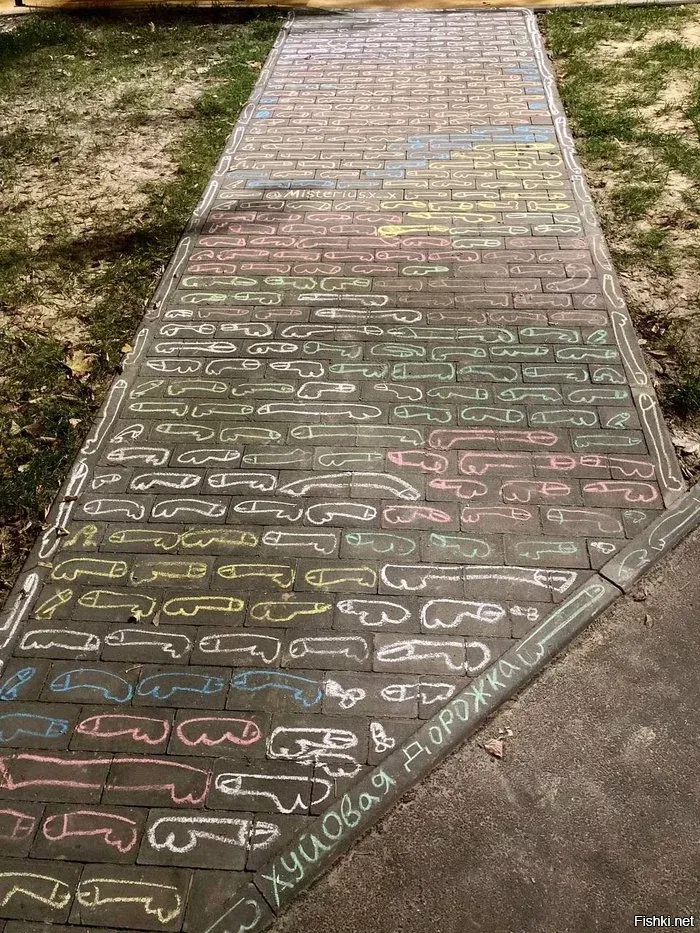 хуйовая дорожка
Fishki.net